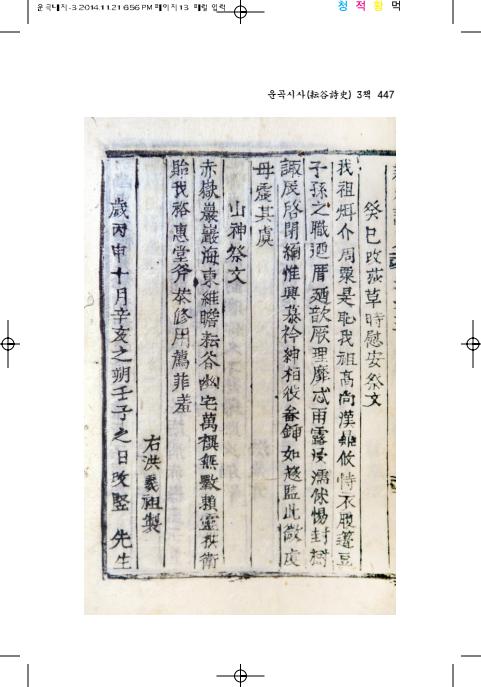 운곡대지-3 2014.11.21 6:56 PM 페이지13 매컬 입력
청 적 황 먹
운곡시사(耘谷詩史) 3책 447
癸巳改莎草時慰安祭文
我祖炳介周粟是恥我祖高尚漢
子孫之職迺厝廼歆厥理靡忒雨露浸濡怵惕封樹
諏辰啓閉緬惟興慕衿紳相役畚鍤如越監此敬虔
毋震其虞
山神祭文
赤嶽巖巖海東維瞻耘谷幽宅萬禩無斁賴靈扶衛
貽我裕惠堂斧恭修用薦菲羞
右洪羲祖製
歲丙申十月辛亥之朔壬子之日改竪 先生